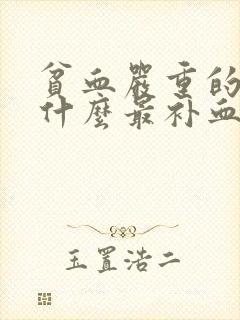 贫血嚴重的
什麼最补血
玉置浩二